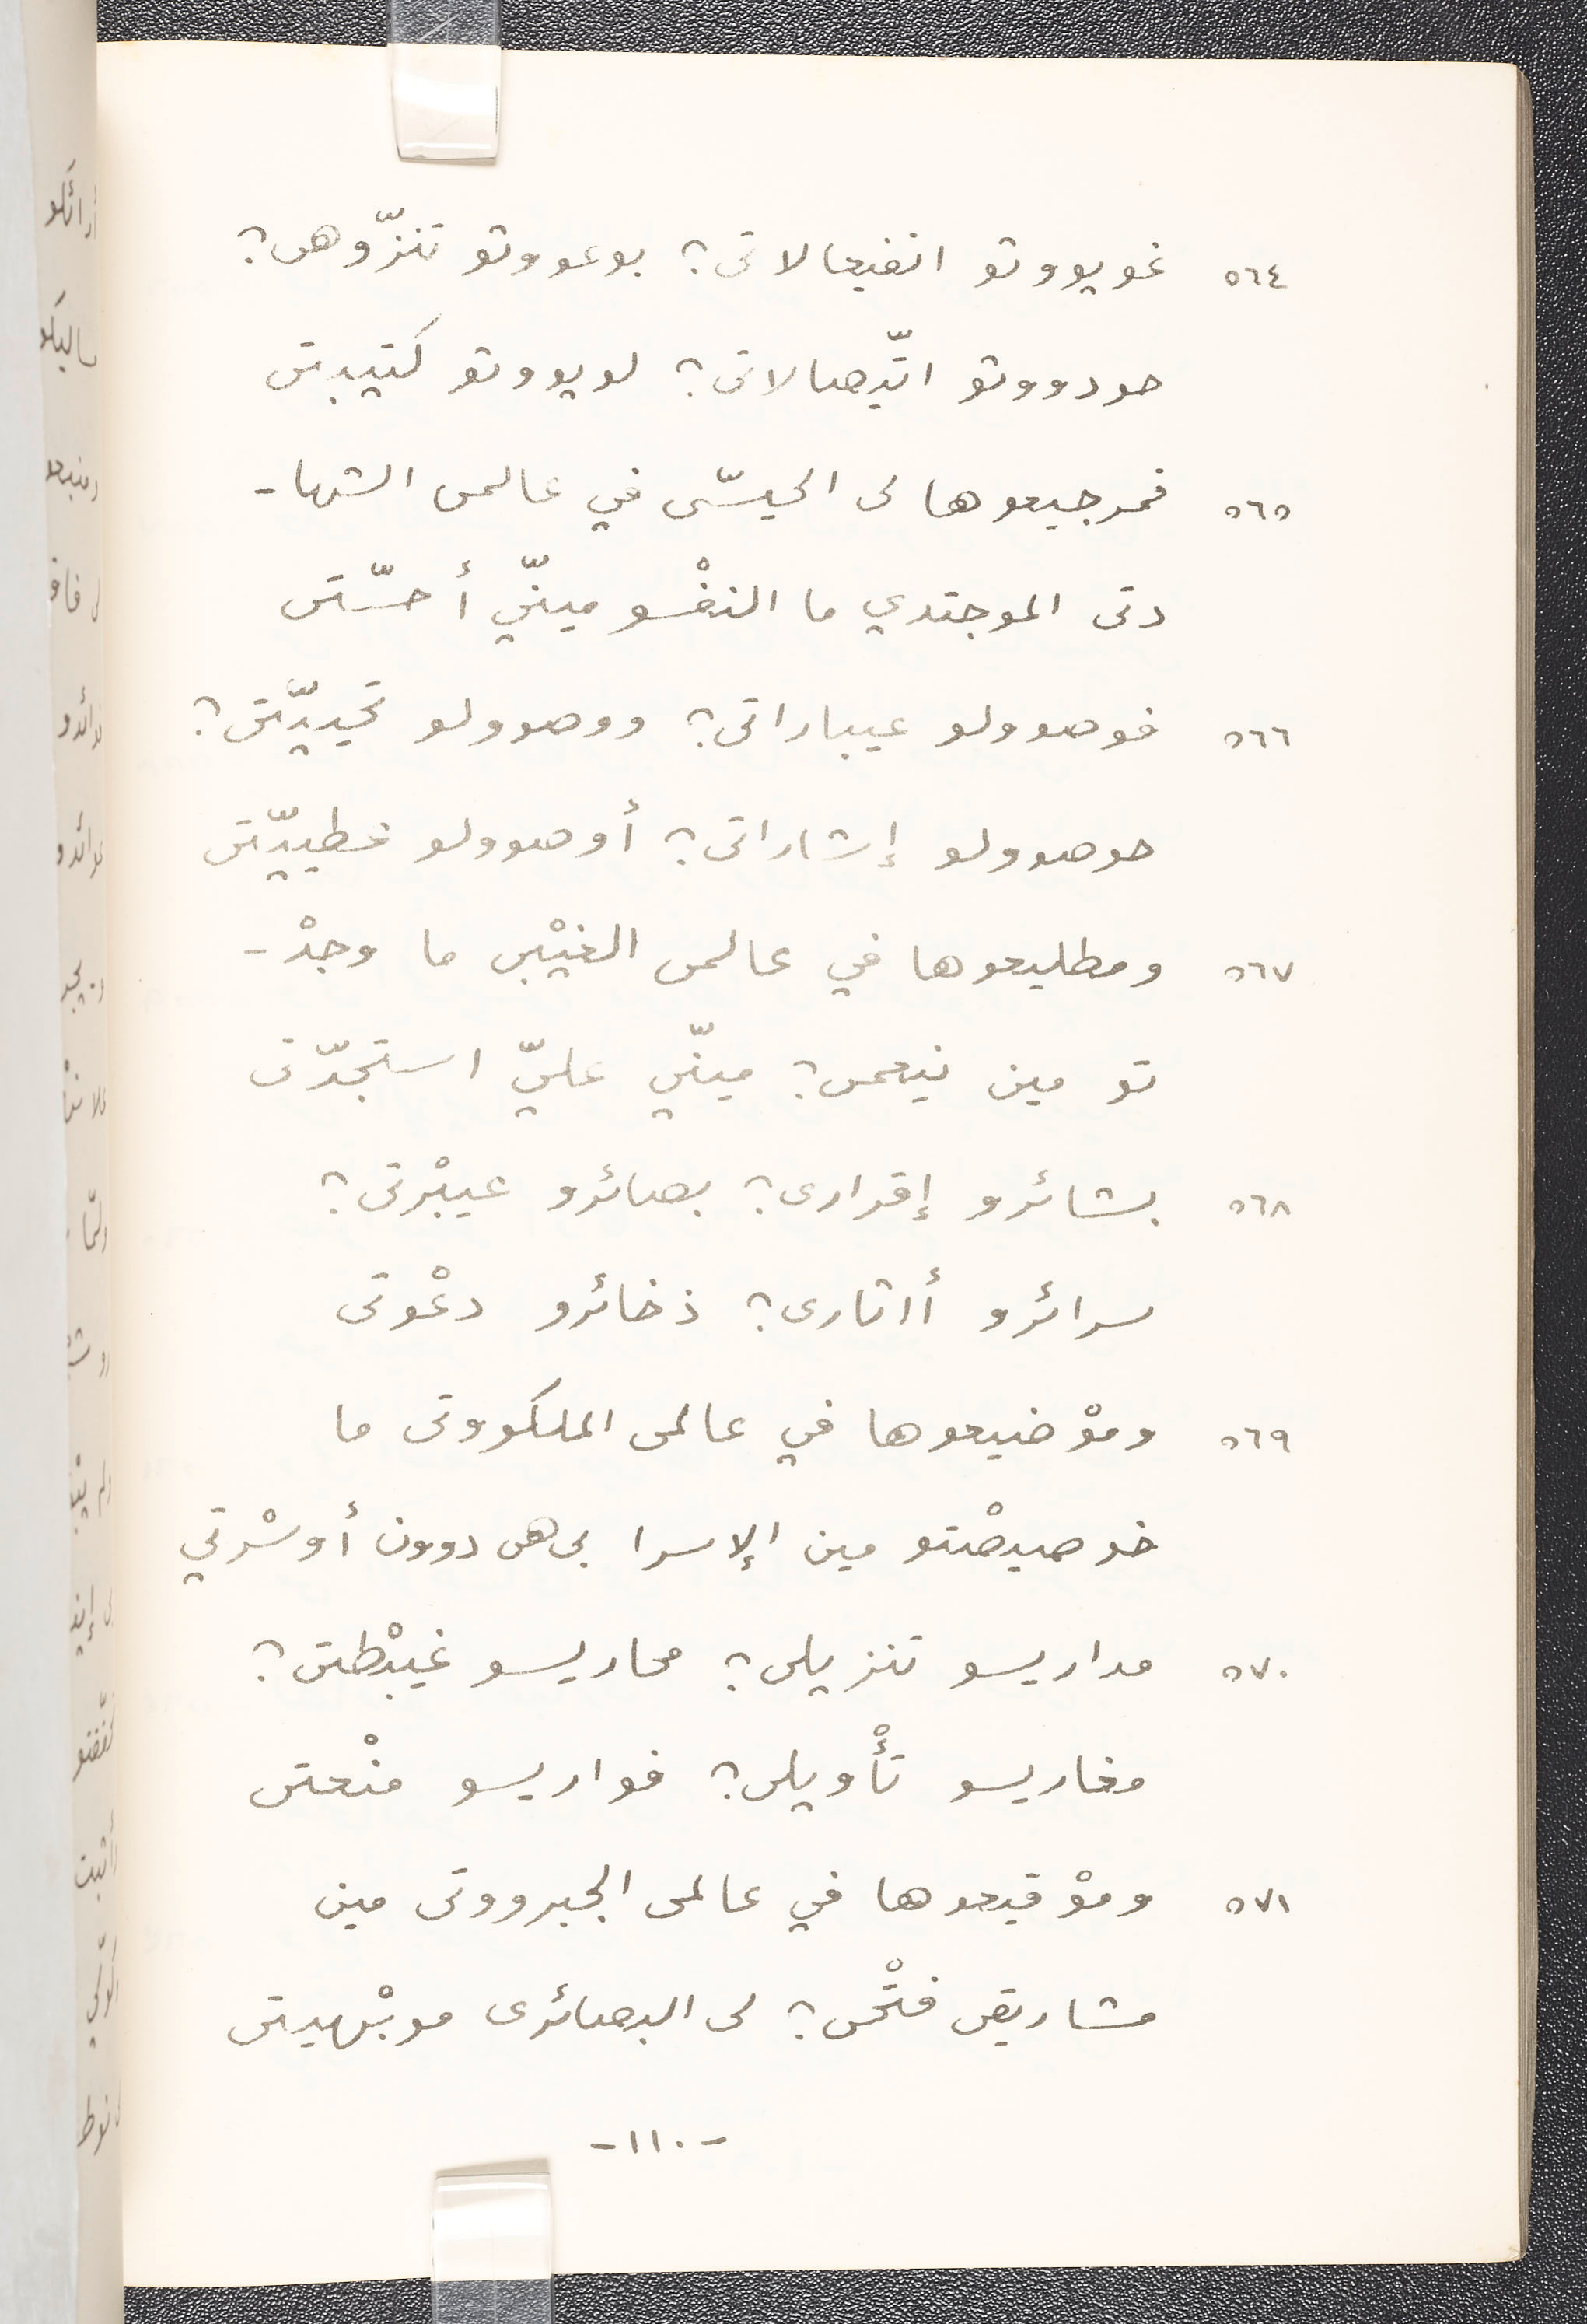 ٥٦٤ غويووتو انفيعالاتى؟ بوعووتو تنزّوهى؟
حودووتو اتّيصالاتى؟ لويووتو كتيبتى
٥٦٥ فمرجيعوها لى الحيسّى في عالمى الشها-
دتى الموجتدي ما النفْسو مينّي أحسّتى
٥٦٦ فوصوولو عيباراتى؟ ووصوولو تحييّتى؟
حوصوولو إشاراتى؟ أوصوولو عطييّتى
٥٦٧ ومطليعوها في عالمى الغيْبى ما وجدْ-
تو مين نيعمى؟ مينّي عليّ استجدّتى
٥٦٨ بشائرو إقرارى؟ بصائرو عيبْرتى؟
سرائرو أاثارى؟ ذخائرو دعْوتى
٥٦٩ وموْضيعوها في عالمى الملكووتى ما
خوصيصْتو مين الإسرا بى هى دوون أوسْرتي
٥٧٠ مداريسو تنزيلى؟ محاريسو غيبْطتى؟
مغاريسو تأْويلى؟ فواريسو منْعتى
٥٧١ وموْقيعوها في عالمى الجبرووتى مين
مشاريقى فتْحى؟ لى البصائرى موبْهيتى
-١١٠-